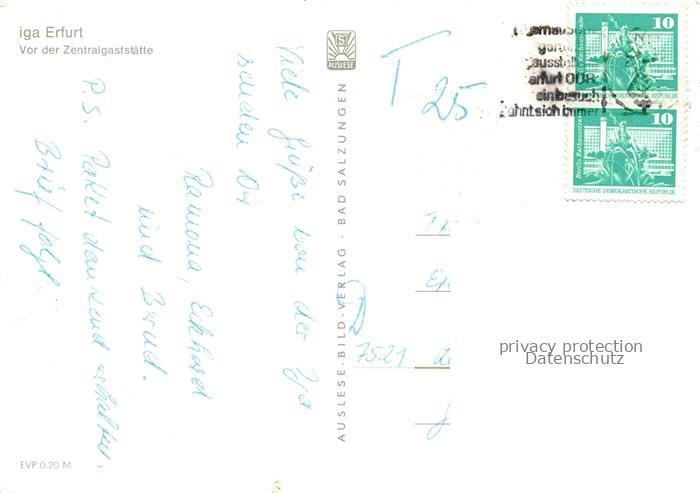 iga Erfurt
Vor der Zentralgaststätte
Viele Grüße von der Iga
senden Dir
Ramona, Eckhard
und Bernd.
P.S. Paket dankend erhalten.
Brief folgt.
EVP 0.20 M
AUSLESE
AUSLESE-BILD-VERLAG · BAD SALZUNGEN
T 25
garten
ausstell
erfurt DDR
ein besuch
lohnt sich immer
10
Berlin, Rathausstraße
DEUTSCHE DEMOKRATISCHE REPUBLIK
10
Berlin, Rathausstraße
DEUTSCHE DEMOKRATISCHE REPUBLIK
7521
privacy protection
Datenschutz